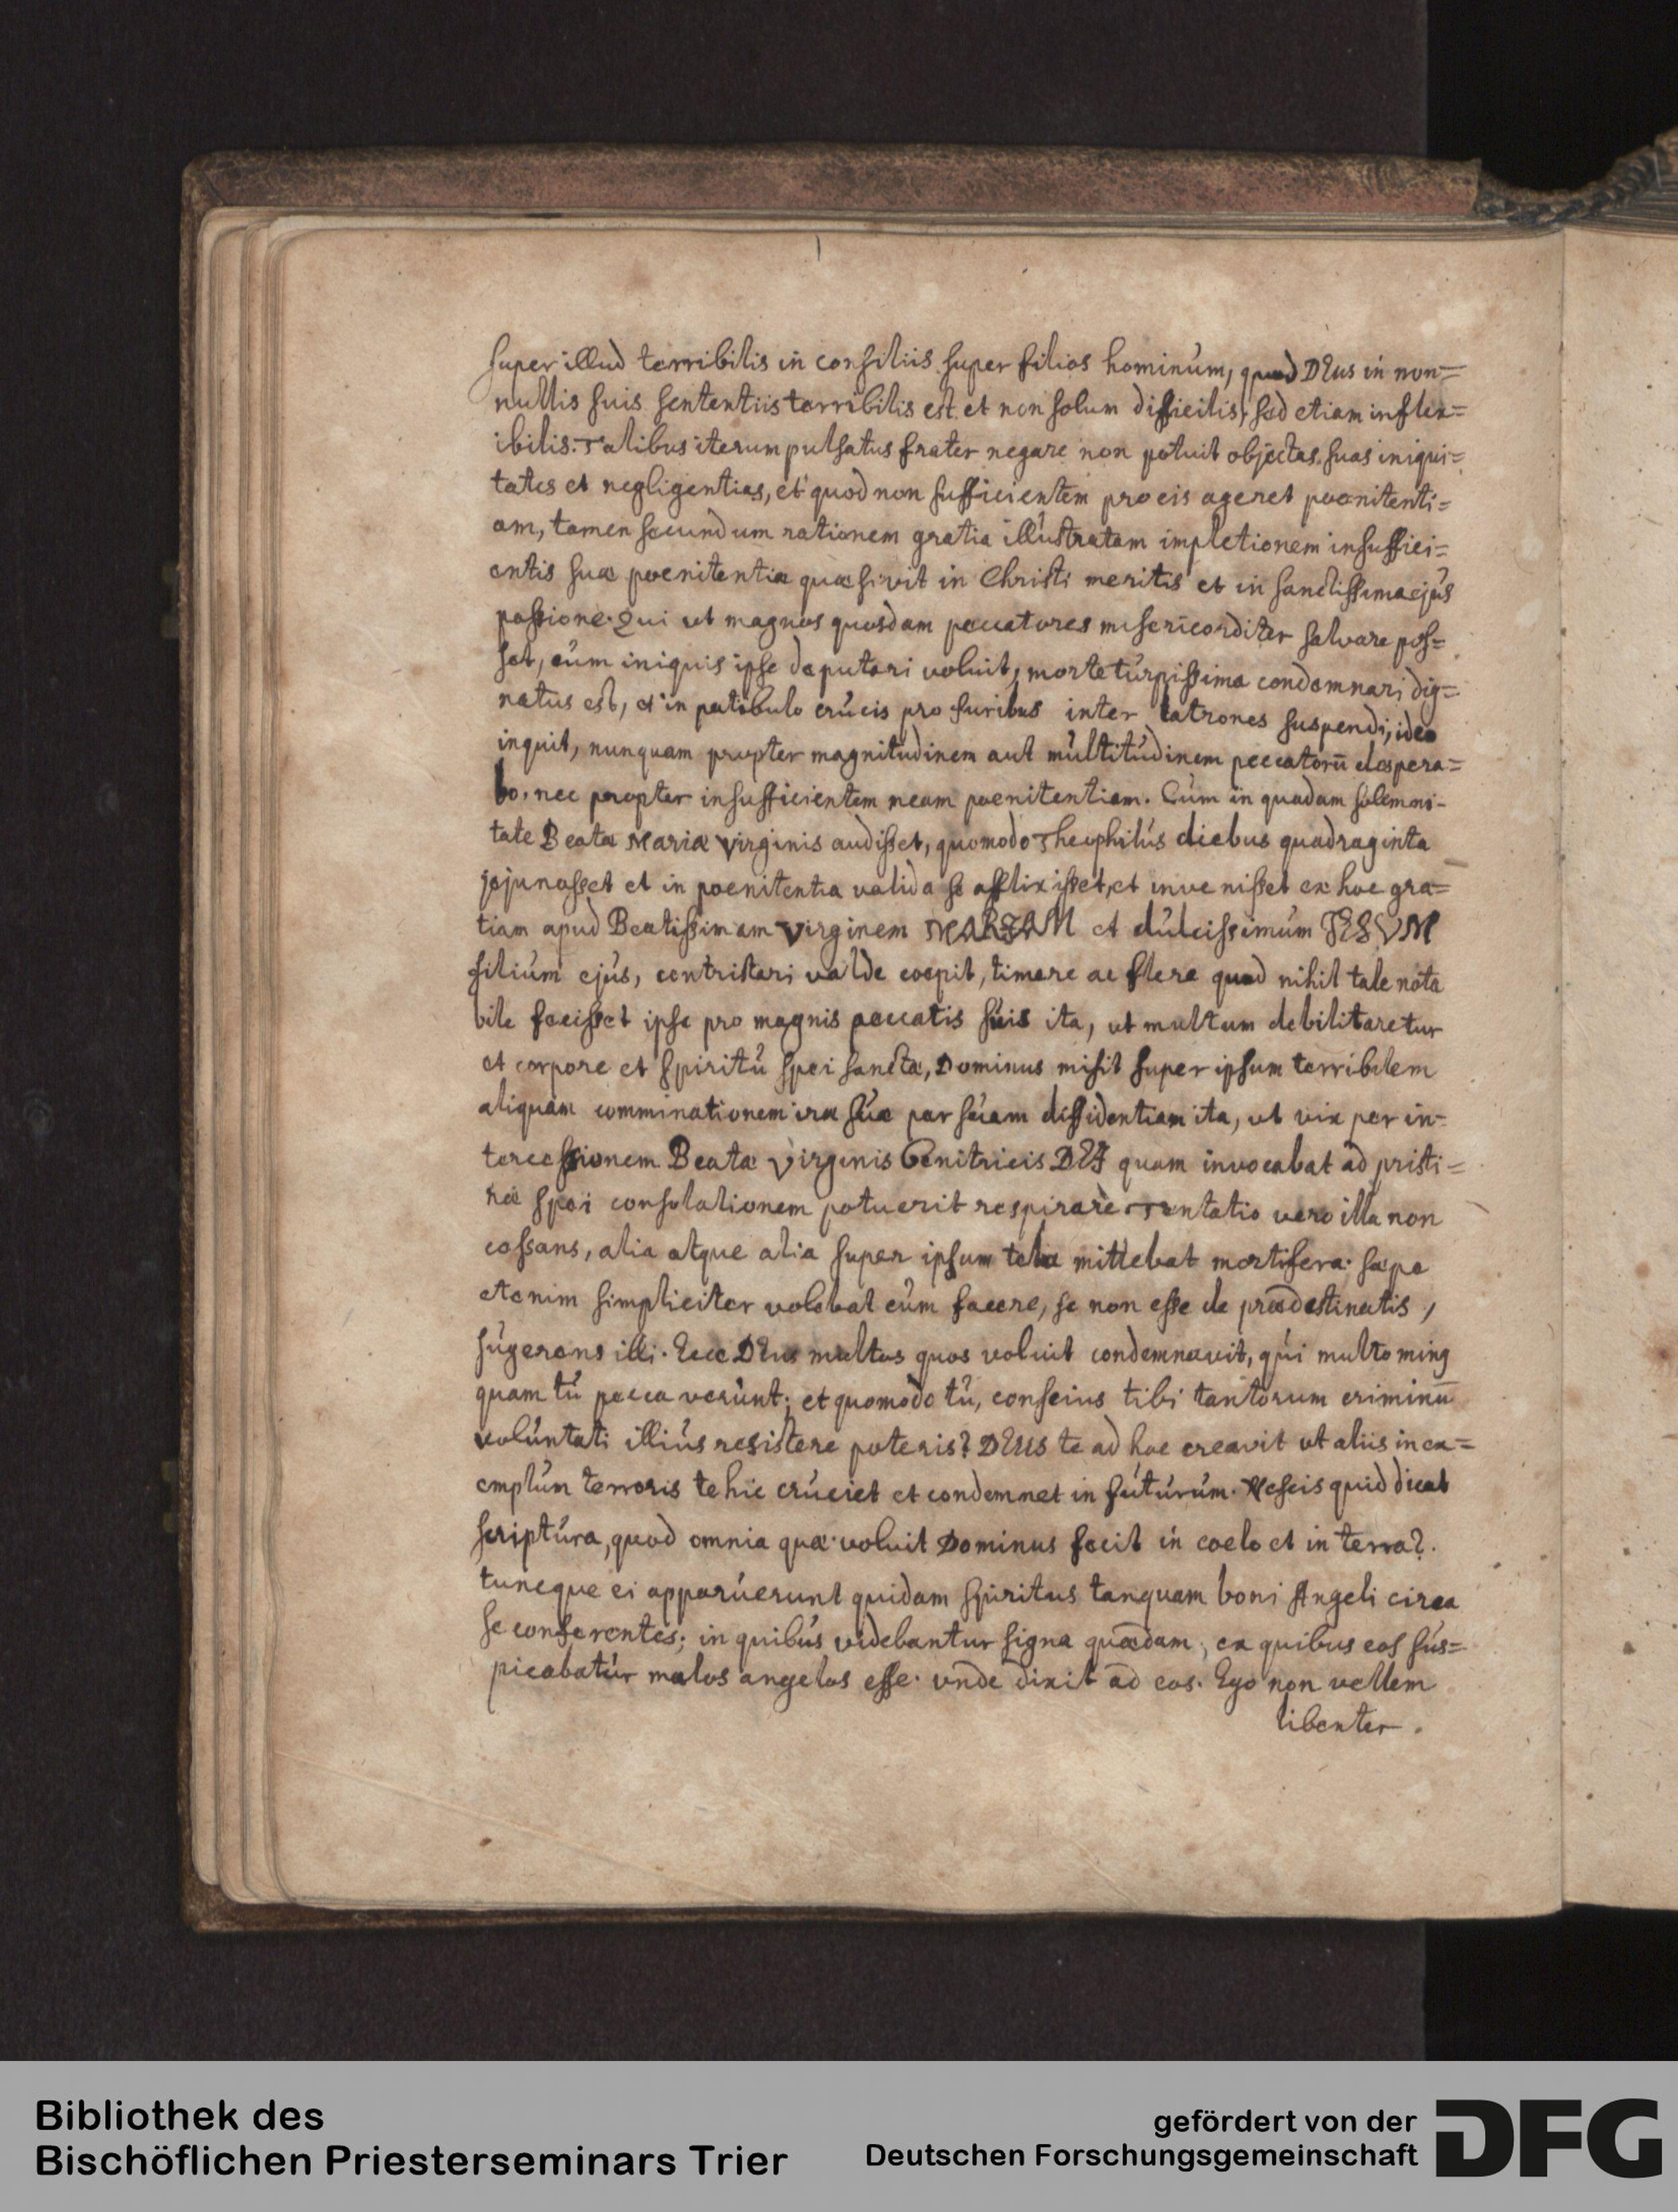 super illud terribilis in consiliis super filios hominúm, quod DEus in non=
nullis suis sententiis terribilis est et non solum difficilis, sed etiam inflex=
ibilis. Talibus iterum pulsatus frater negare non potuit objectas suas iniqui=
tates et negligentias, et quod non sufficientem pro eis ageret poenitenti=
am, tamen secundum rationem gratia illústratam impletionem insuffici=
entis suæ poenitentiæ quæsivit in Christi meritis et in sanctissima ejús
passione. Qui ut magnos quosdam peccatores misericorditer salvare pos=
set, cúm iniquis ipse deputari voluit, morte túrpissima condemnari dig=
natus est, et in patibulo crúcis pro furibus inter latrones suspendi, ideo
inquit, nunquam propter magnitúdinem aut múltitúdinem peccatorū despera=
bo, nec propter insufficientem meam poenitentiam. Cúm in quadam solemni-
tate Beatæ Mariæ Virginis audisset, quomodo Theophilús diebus quadraginta
jejunasset et in poenitentia valida se afflixisset, et invenisset ex hoc gra=
tiam apud Beatissimam Virginem MARIAM et dúlcissimúm JESVM
filiúm ejús, contristari valde coepit, timere ac flere quod nihil tale nota
bile fecisset ipse pro magnis peccatis súis ita, ut multum debilitaretur
et corpore et spiritú spei sanctæ, Dominus misit super ipsum terribilem
aliquam comminationem iræ súæ per súam diffidentiam ita, ut vix per in-
tercessionem Beatæ Virginis Genitricis DEI quam invocabat ad pristi=
næ spei consolationem potuerit respirare. Tentatio vero illa non
cessans, alia atque alia super ipsum tela mittebat mortifera. sæpe
etenim simpliciter volebat eúm facere, se non esse de prædestinatis,
súgerens illi. Ecce DEus multos quos voluit condemnavit, qúi multo ming
quam tú peccaverúnt; et quomodo tú, conscius tibi tantorum criminū
volúntati illiús resistere poteris? DEUS te ad hoc creavit ut aliis in ex=
emplúm terroris te hic crúciet et condemnet in fútúrúm. Nescis quid dicat
scriptúra, quod omnia quæ voluit Dominus fecit in coelo et in terra?.
tuncque ei apparúerunt quidam spiritus tanquam boni Angeli circa
se conferentes; in quibús videbantur signa quædam, ex quibus eos sús=
picabatúr malos angelos esse. vnde dixit ad eos. Ego non vellem
libenter.
Bibliothek des
Bischöflichen Priesterseminars Trier
gefördert von der
Deutschen Forschungsgemeinschaft
DFG